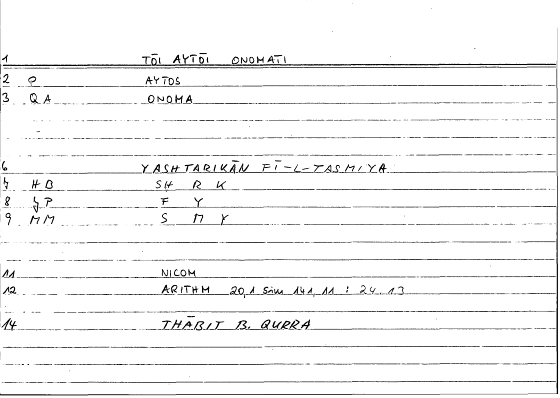 1 TŌI AYTŌI ONOMATI
2 Q AYTOS
3 QA ONOMA
6 YASHTARIKĀN FĪ-L-TASMIYA
7 HB SH R K
8 JP F Y
9 MM S M Y
11 NICOM
12 ARITHM 20,1 Sim 141, 11 : 24 13
14 THĀBIT B. QURRA